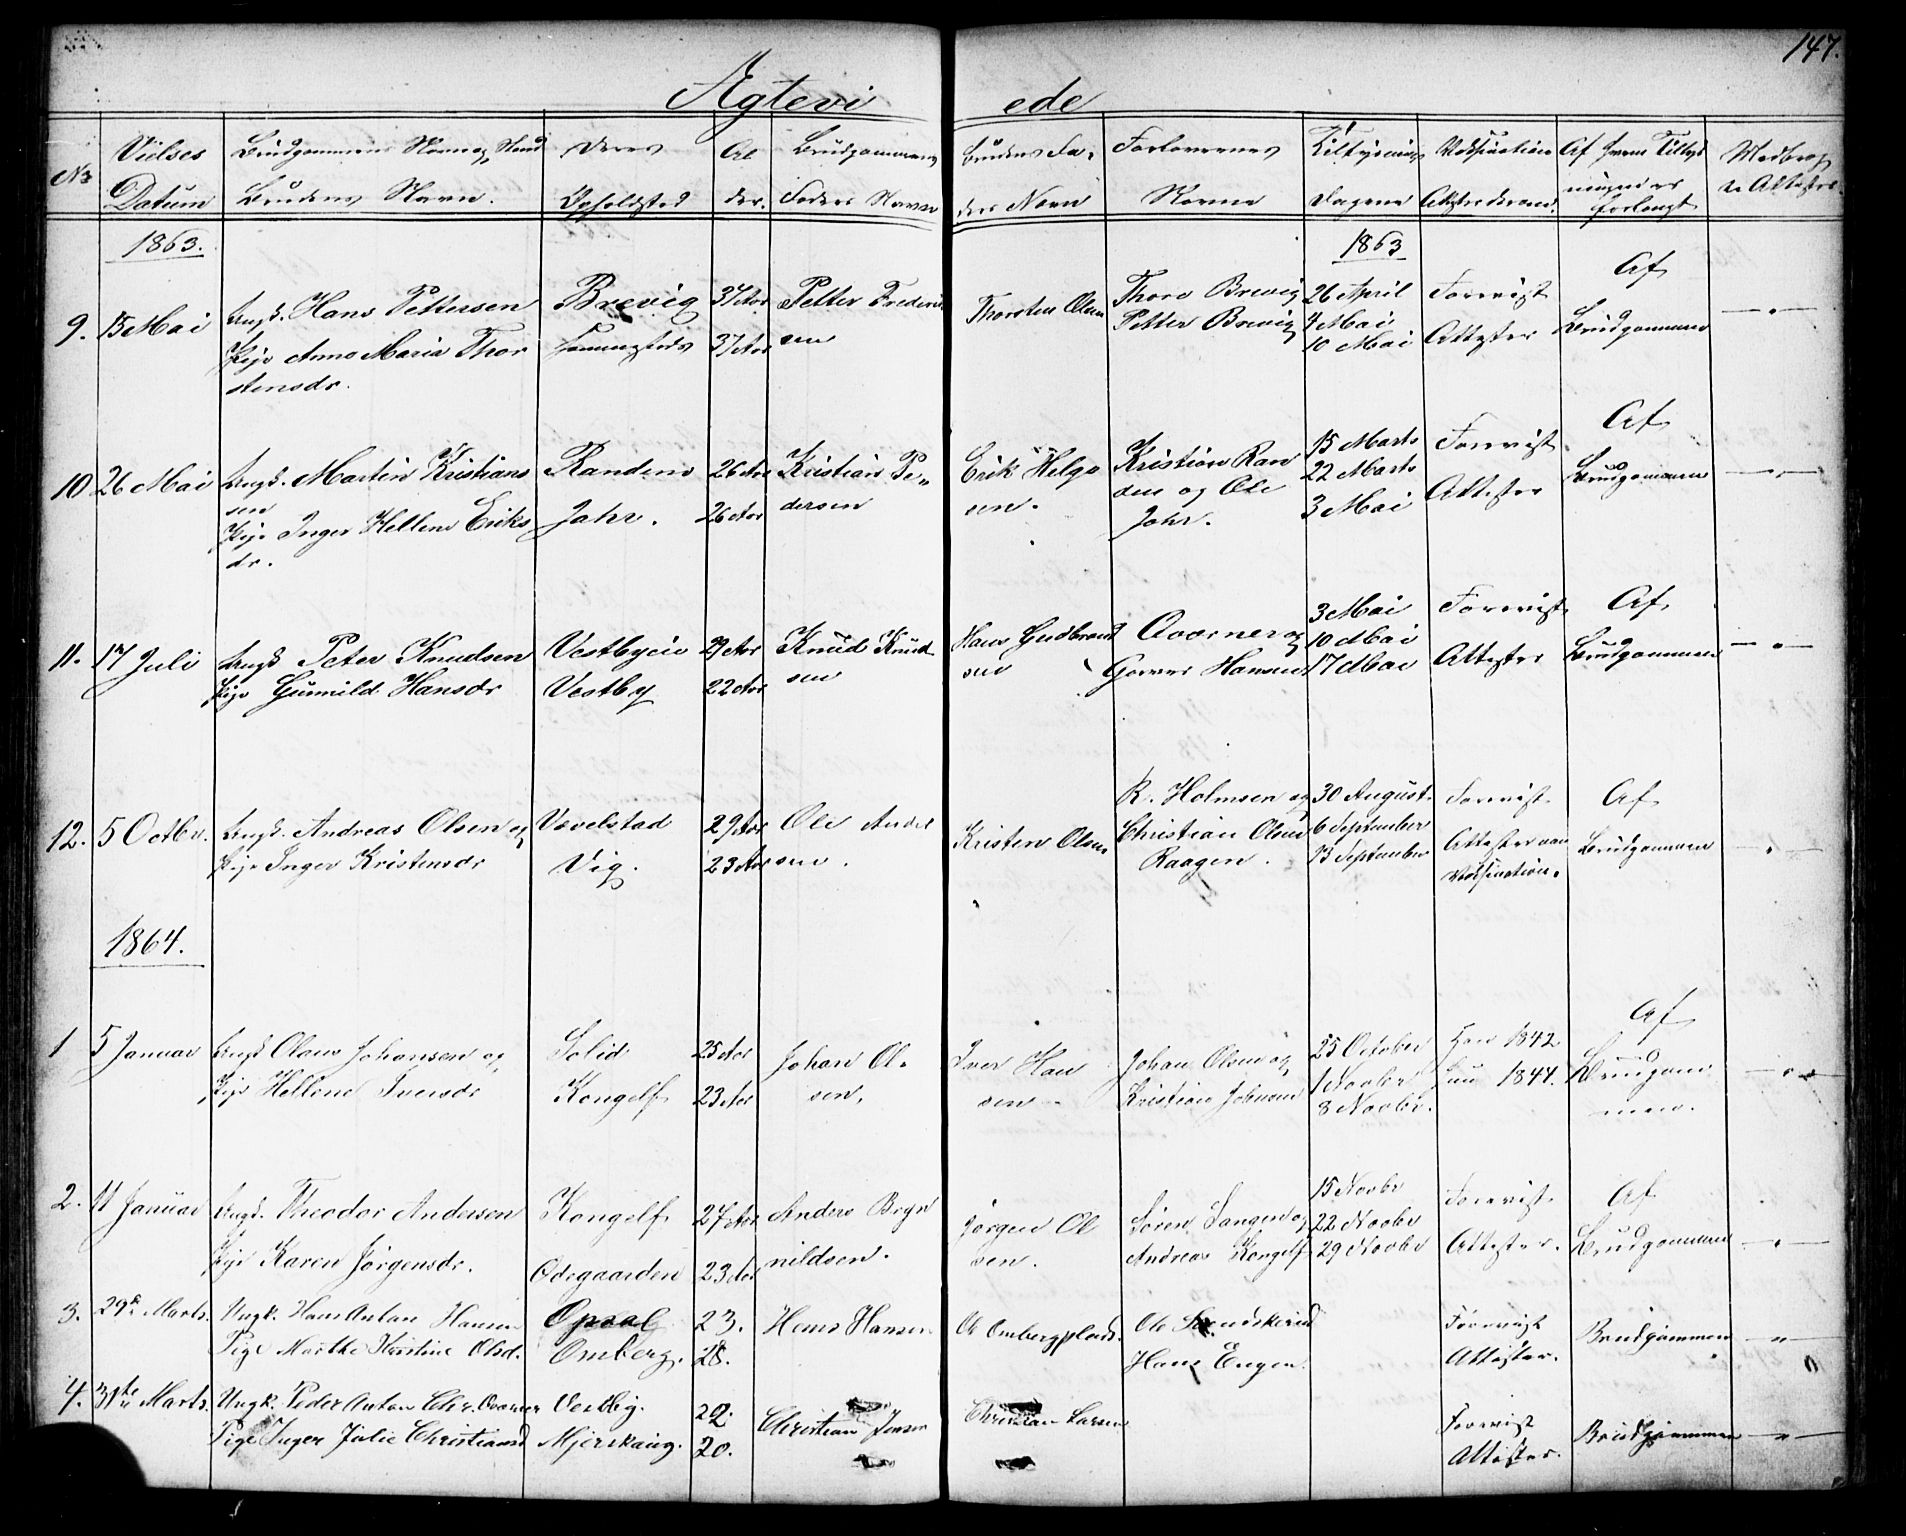 147.
Ægteviede
No
Vielses Datum
Brudgommens Navn og Stand
Brudens Navn.
Deres Opholdsted
Alder.
Brudgommens Faders Navn
Brudens Faders Navn
Forlovernes Navne
Tillysnings Dagene
Vaksinations Attest
Af hvem Tillysningen er forlangt
1863.
1863
9. 15 Mai
Ungk. Hans Pettersen
Pige Anne Maria Thorstensdr.
Brevig
37 Aar
37 Aar
Petter Frederiksen
Thorsten Olsen
Thore Brevig
Petter Brevig
26 April
4 Mai
10 Mai
Forevist Attester
Af Brudgommen
10 26 Mai
Ungk. Martin Kristiansen
Pige Inger Hellene Eriksdr.
Randem
Jahr.
26 Aar
26 Aar
Kristian Pedersen
Erik Helgesen.
Kristian Randem og Ole Jahr.
15 Marts
22 Marts
3 Mai
Forevist Attester
Af Brudgommen
11. 17 Juli
Ungk Peter Knudsen
Pige Gunnild Hansdr
Vestbyeie
Vestby
29 Aar
22 Aar
Knud Knudsen
Hans Gudbrandsen
og Hansen
3 Mai
10 Mai
17 Mai
Forevist Attester
Af Brudgommen
12. 5 Octbr.
Ungk. Andreas Olsen og
Pige Inger Kristensdr
Vevelstad
Vig.
29 Aar
23 Aar
Ole Andersen.
Kristen Olsen
R. Holmsen og
Christian Olsen
Raagen.
30 August.
6 September
13 September
Forevist Attester om Vaksination.
Af Brudgommen
1864.
1 5 Januar
Ungk Olaus Johansen og
Pige Hellene Iversdr
Solid
Kongelf
25 Aar
23 Aar
Johan Olsen.
Iver Hansen
Johan Olsen og
Kristian Johnsen
25 October
1 Novbr
8 Novbr.
Han 1842
Hun 1844.
Af Brudgommen.
2. 11 Januar
Ungk. Theodor Andersen
Pige Karen Jörgensdr.
Kongelf
Ødegaarden
27 Aar
23 Aar
Anders Brynildsen.
Jörgen Olsen.
Sören Langen og
Andreas Kongelf
15 Novbr
22 Novbr
29 Novbr
Forevist Attester.
Af Brudgommen
3. 29de Marts.
Ungk. Hans Anton Hansen
Pige Marthe Kristine Olsd.
Opsal
Omberg.
23.
28.
Hans Hansen.
Ol Ombergplads.
Ole
Hans Engen.
Forevist Attester.
Brudgommen
4. 31te Marts.
Ungk. Peder Anton Chr.
Pige Inger Julie Christiansd
Vestby.
Mjerskaug.
22.
20.
Christian Jensen
Christian Larsen
Forevist Attester.
Brudgommen